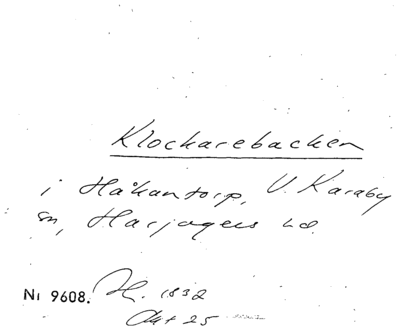 Klockarebacken
i Håkantorp, V. Karaby
sn, Harjagers hd.
Nr 9608. H. 1832
Akt 25